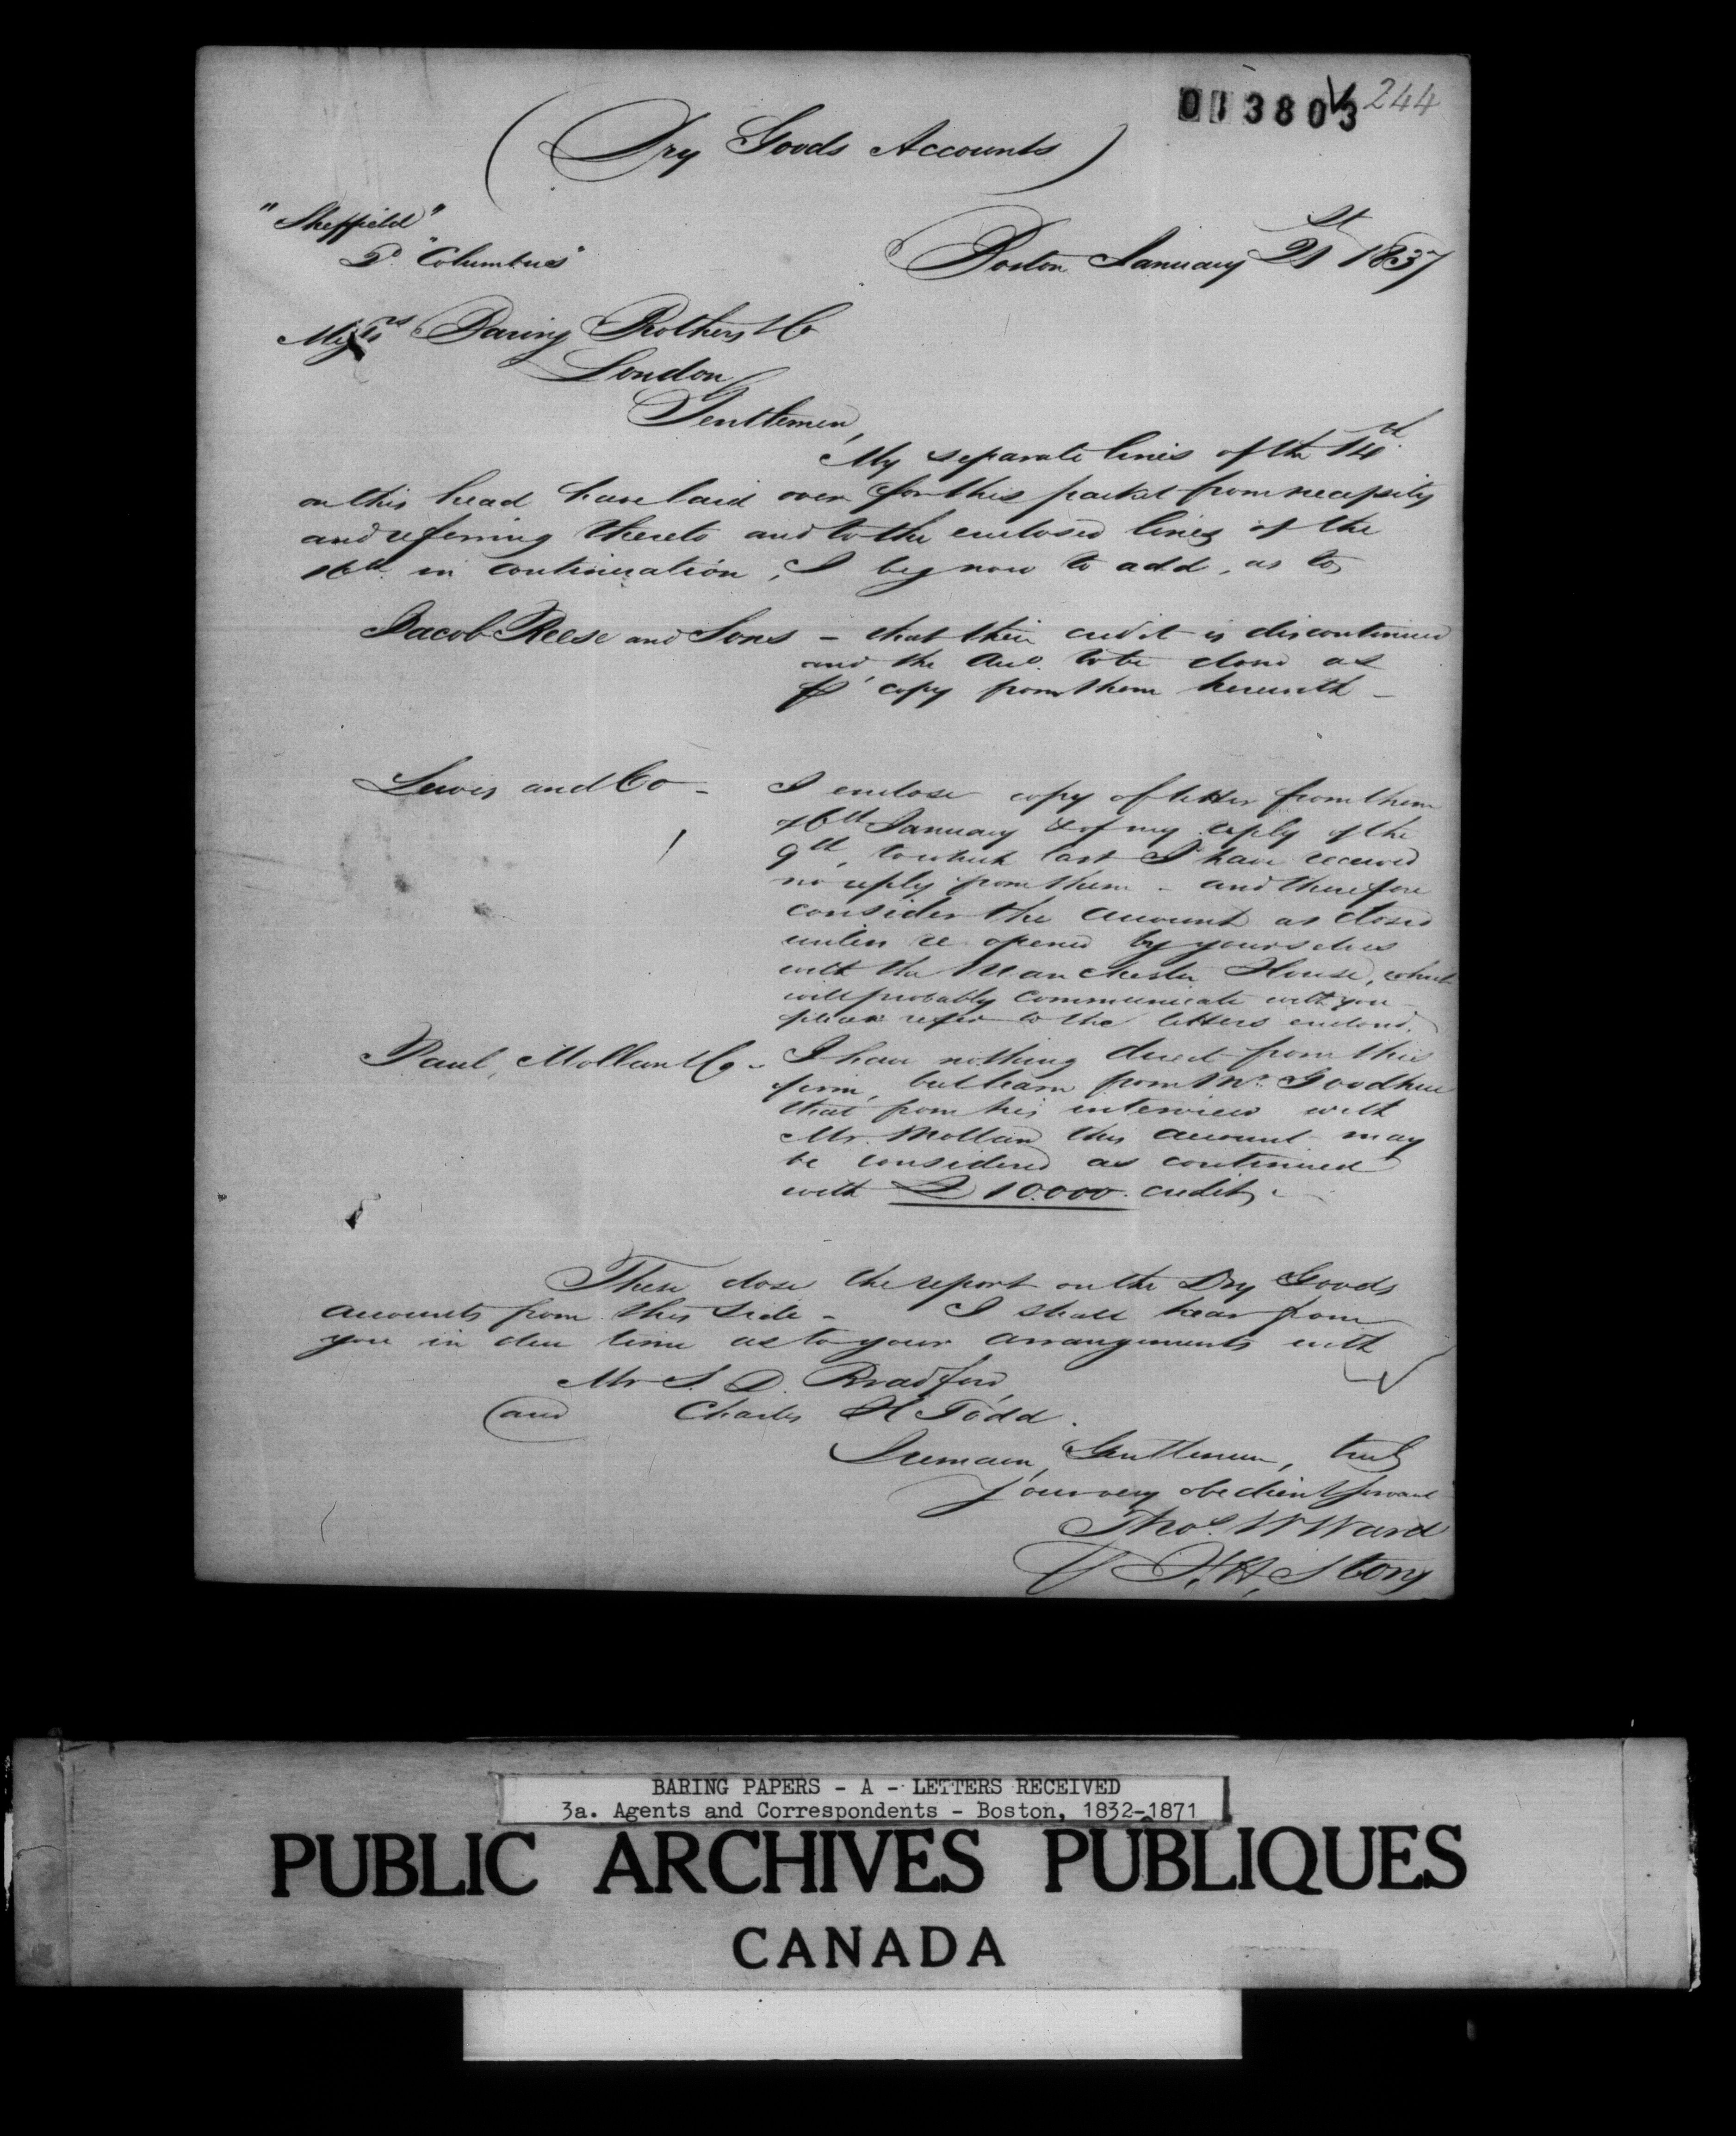 013803 244
(Dry Goods Accounts)
"Sheffield"
D. "Columbus"
Boston January 21st 1837
Messrs Baring Brothers & Co
London
Gentlemen,
My separate lines of the 14d
on this head have laid over for this packet from necessity
and referring thereto and to the enclosed lines of the
16th in continuation, I beg now to add, as to
Jacob Reese and Sons - that their credit is discontinued
and the Acco. to be closed as
copy from them herewith -
Lewis and Co - I enclose copy of letter from them
of 6th January & of my reply of the
9th, to which last I have received
no reply from them - and therefore
consider the account as closed
unless re opened by yourselves
with the Manchester House, which
will probably communicate with you -
please refer to the letters enclosed.
Paul, Mollan & Co - I have nothing direct from this
firm, but learn from Mr. Goodhue
that from his interview with
Mr. Mollan this account may
be considered as continued
with £10.000. credit,
These close the report on the Dry Goods
accounts from this side - I shall hear from
you in due time as to your arrangements with
Mr S. D. Bradford,
and Charles H Todd.
I remain, Gentlemen, truly
Your very obedient servant
Thos. W Ward
H. H. Story
BARING PAPERS - A - LETTERS RECEIVED
3a. Agents and Correspondents - Boston, 1832-1871
PUBLIC ARCHIVES PUBLIQUES
CANADA